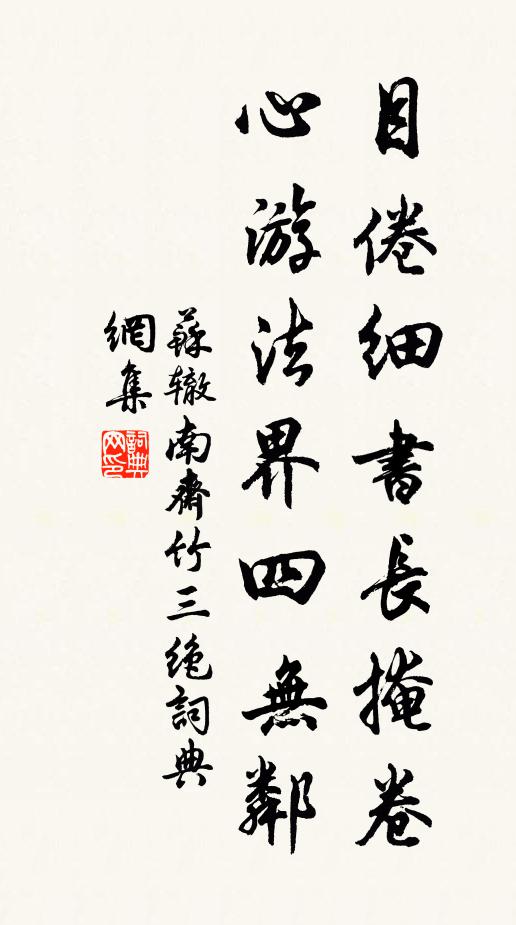 目倦细書長掩卷
心游法界四無鄰
蘇辙南齋竹三绝詞典
網集
詞典
网印